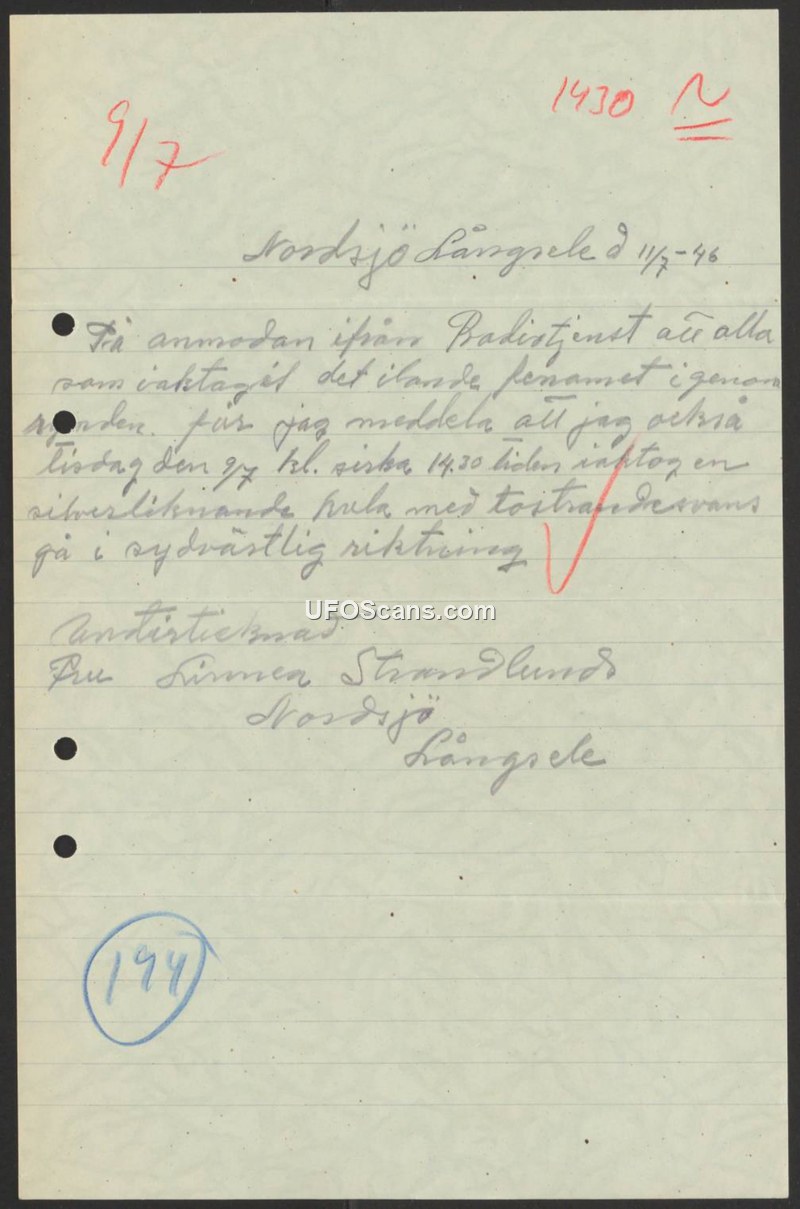 9/7
1430 N
Nordsjö Långsele d 11/7-46
På anmodan ifrån Radiotjenst att alla
som iaktagit det ilande fenamet igenom
rymden. får jag meddela att jag också
tisdag den 9/7 kl. sirka 14.30 tiden iaktog en
silverliknande kula med
gå i sydvästlig riktning
UFOScans.com
Undertecknad
Fru Linnea Strandlund
Nordsjö
Långsele
194